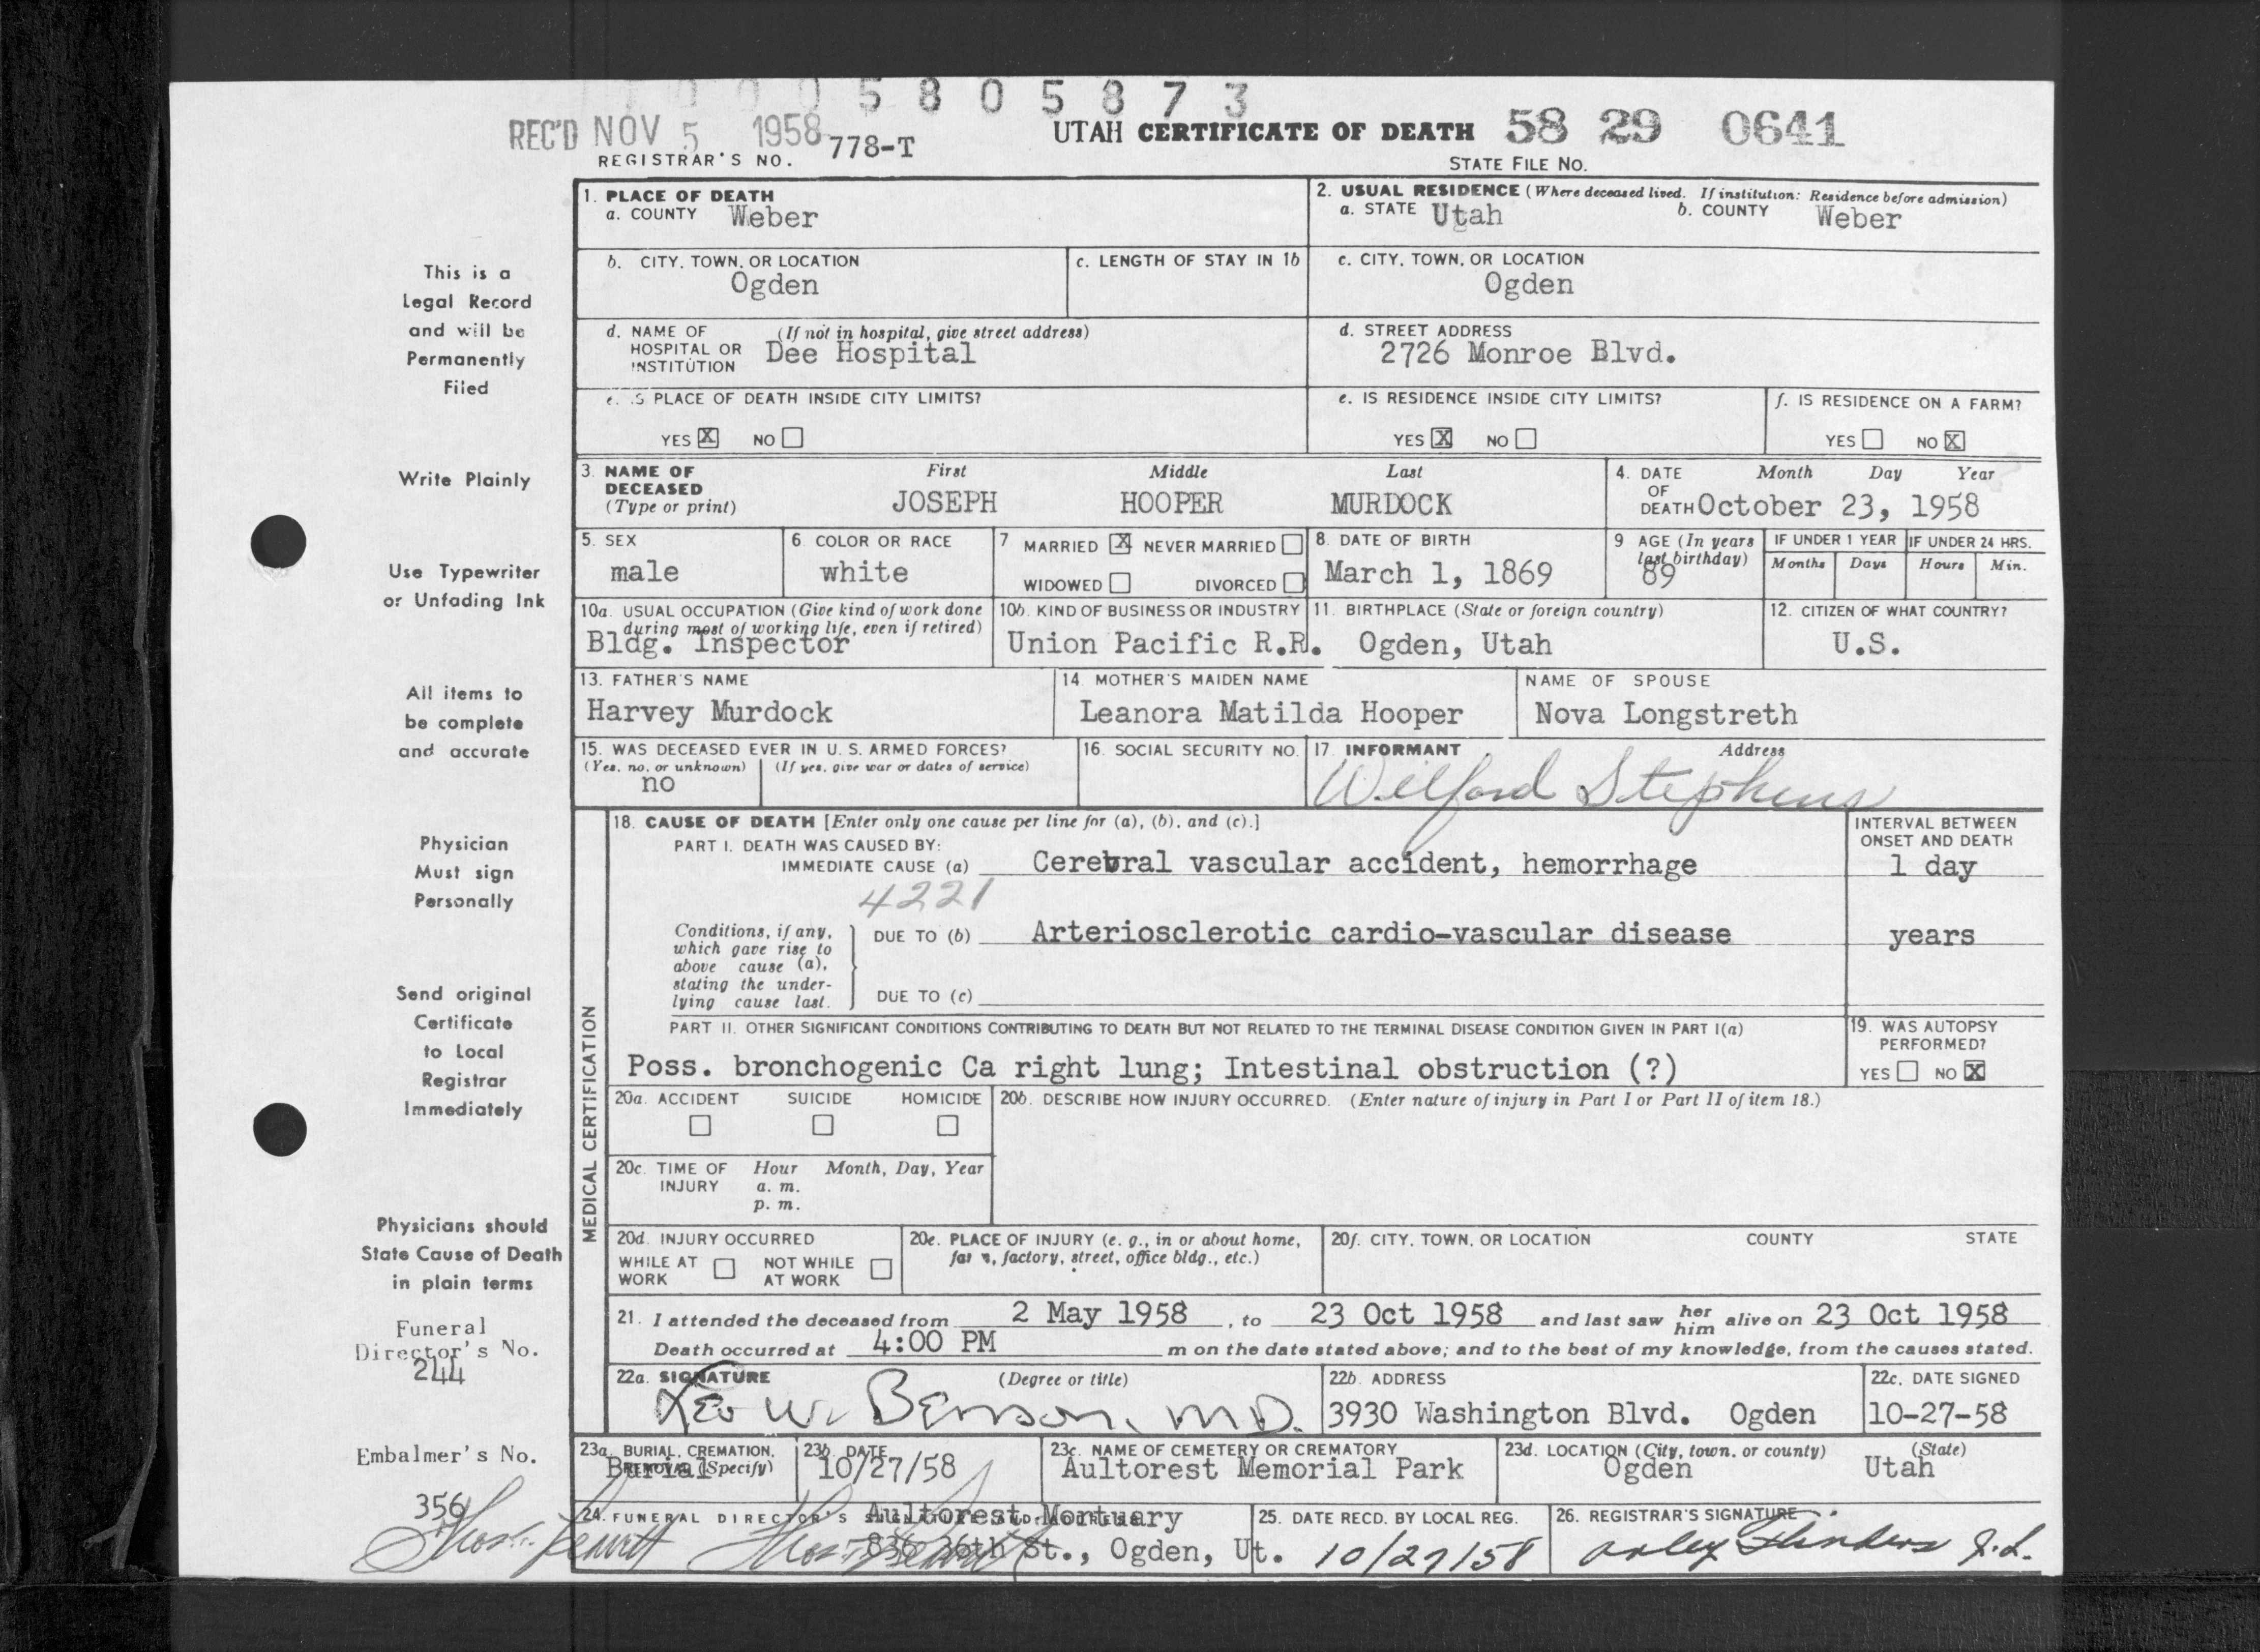 5 8 0 5 8 7 3
REC'D NOV 5 1958 778-T UTAH CERTIFICATE OF DEATH 58 29 0641
REGISTRAR'S NO. STATE FILE NO.
This is a
Legal Record
and will be
Permanently
Filed
Write Plainly
Use Typewriter
or Unfading Ink
All items to
be complete
and accurate
Physician
Must sign
Personally
Send original
Certificate
to Local
Registrar
Immediately
Physicians should
State Cause of Death
in plain terms
Funeral
Director's No.
244
Embalmer's No.
356
1. PLACE OF DEATH
a. COUNTY Weber
2. USUAL RESIDENCE (Where deceased lived. If institution: Residence before admission)
a. STATE Utah b. COUNTY Weber
b. CITY, TOWN, OR LOCATION
Ogden
c. LENGTH OF STAY IN 1b
c. CITY, TOWN, OR LOCATION
Ogden
d. NAME OF (If not in hospital, give street address)
HOSPITAL OR Dee Hospital
INSTITUTION
d. STREET ADDRESS
2726 Monroe Blvd.
e. IS PLACE OF DEATH INSIDE CITY LIMITS?
YES X NO
e. IS RESIDENCE INSIDE CITY LIMITS?
YES X NO
f. IS RESIDENCE ON A FARM?
YES NO X
3. NAME OF DECEASED (Type or print)
First Middle Last
JOSEPH HOOPER MURDOCK
4. DATE OF DEATH Month Day Year
October 23, 1958
5. SEX
male
6. COLOR OR RACE
white
7 MARRIED X NEVER MARRIED
WIDOWED DIVORCED
8. DATE OF BIRTH
March 1, 1869
9 AGE (In years last birthday)
89
IF UNDER 1 YEAR IF UNDER 24 HRS.
Months Days Hours Min.
10a. USUAL OCCUPATION (Give kind of work done
during most of working life, even if retired)
Bldg. Inspector
10b. KIND OF BUSINESS OR INDUSTRY
Union Pacific R.R.
11. BIRTHPLACE (State or foreign country)
Ogden, Utah
12. CITIZEN OF WHAT COUNTRY?
U.S.
13. FATHER'S NAME
Harvey Murdock
14. MOTHER'S MAIDEN NAME
Leanora Matilda Hooper
NAME OF SPOUSE
Nova Longstreth
15. WAS DECEASED EVER IN U. S. ARMED FORCES?
(Yes, no, or unknown) (If yes, give war or dates of service)
no
16. SOCIAL SECURITY NO.
17. INFORMANT Address
Wilford Stephens
MEDICAL CERTIFICATION
18. CAUSE OF DEATH [Enter only one cause per line for (a), (b), and (c).]
INTERVAL BETWEEN
ONSET AND DEATH
PART I. DEATH WAS CAUSED BY:
IMMEDIATE CAUSE (a) Cerebral vascular accident, hemorrhage 1 day
4221
Conditions, if any,
which gave rise to
above cause (a),
stating the under-
lying cause last.
DUE TO (b) Arteriosclerotic cardio-vascular disease years
DUE TO (c)
PART II. OTHER SIGNIFICANT CONDITIONS CONTRIBUTING TO DEATH BUT NOT RELATED TO THE TERMINAL DISEASE CONDITION GIVEN IN PART I(a)
Poss. bronchogenic Ca right lung; Intestinal obstruction (?)
19. WAS AUTOPSY
PERFORMED?
YES NO X
20a. ACCIDENT SUICIDE HOMICIDE
20b. DESCRIBE HOW INJURY OCCURRED. (Enter nature of injury in Part I or Part II of item 18.)
20c. TIME OF Hour Month, Day, Year
INJURY a. m.
p. m.
20d. INJURY OCCURRED
WHILE AT WORK NOT WHILE AT WORK
20e. PLACE OF INJURY (e. g., in or about home,
farm, factory, street, office bldg., etc.)
20f. CITY, TOWN, OR LOCATION COUNTY STATE
21. I attended the deceased from 2 May 1958, to 23 Oct 1958 and last saw her him alive on 23 Oct 1958
Death occurred at 4:00 PM m on the date stated above; and to the best of my knowledge, from the causes stated.
22a. SIGNATURE (Degree or title)
Leo W. Benson, M.D.
22b. ADDRESS
3930 Washington Blvd. Ogden
22c. DATE SIGNED
10-27-58
23a. BURIAL, CREMATION,
REMOVAL (Specify)
Burial
23b. DATE
10/27/58
23c. NAME OF CEMETERY OR CREMATORY
Aultorest Memorial Park
23d. LOCATION (City, town, or county) (State)
Ogden Utah
24. FUNERAL DIRECTOR'S
Aultorest Mortuary
836 36th St., Ogden, Ut.
25. DATE RECD. BY LOCAL REG.
10/27/58
26. REGISTRAR'S SIGNATURE